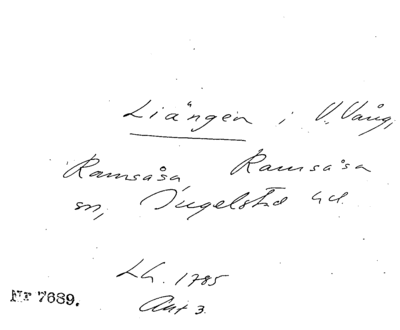 Liängen i V. Vång,
Ramsåsa, Ramsåsa
sn, Ingelstad hd.
Lh. 1785
Akt 3.
Nr 7689.